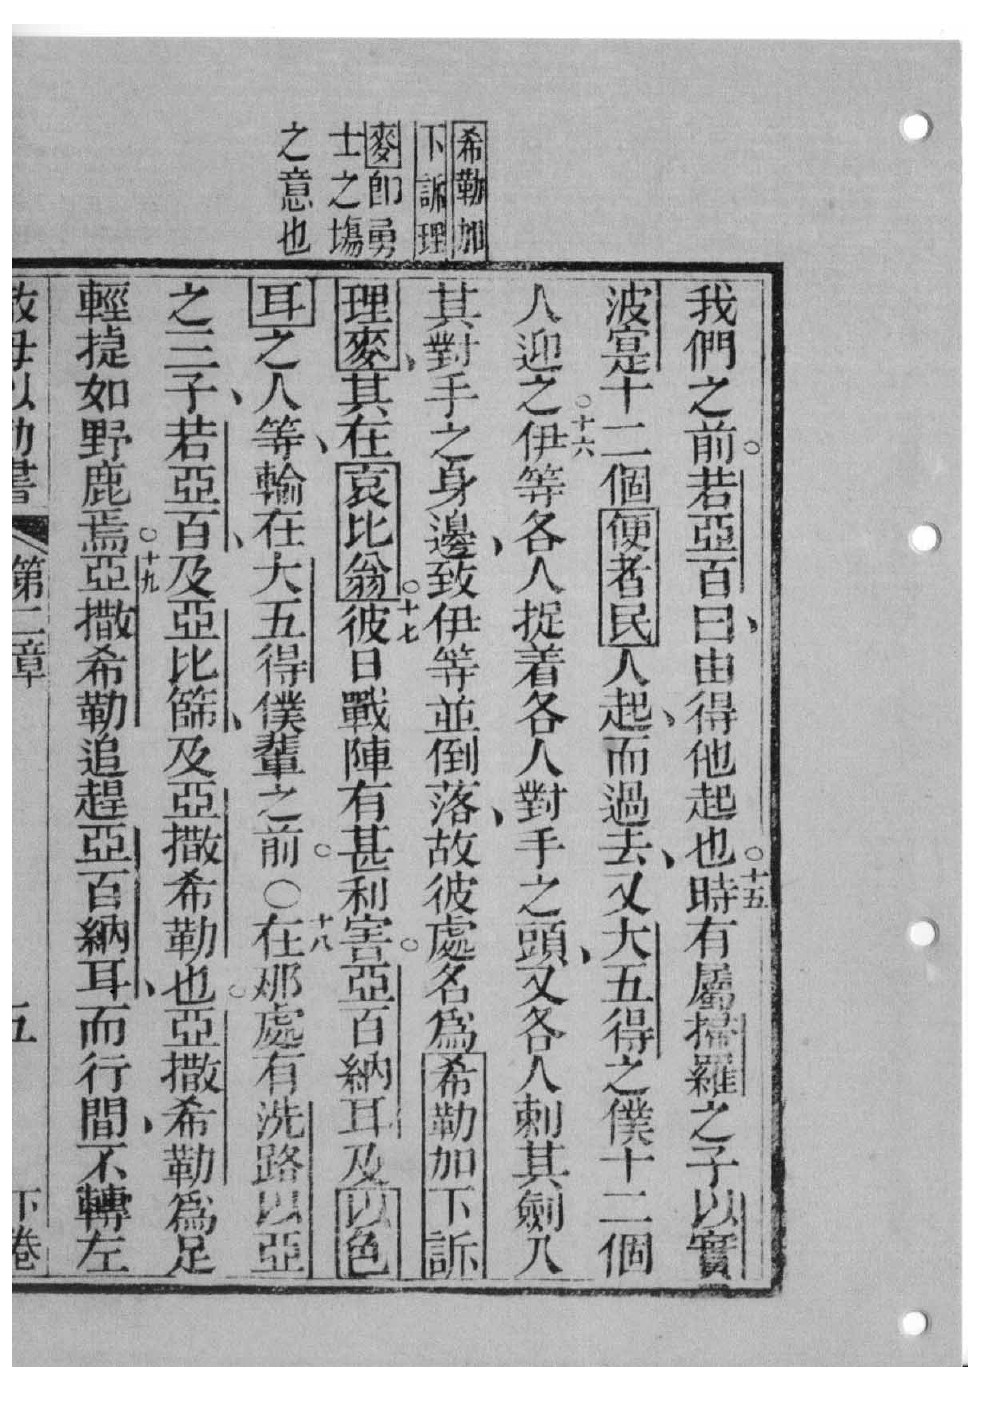 希勒加
下訴理
麥卽勇
士之塲
之意也
我們之前若亞百曰由得他起也
十五
時有屬掃羅之子以實
波寔十二個便者民人起而過去又大五得之僕十二個
人迎之
十六
伊等各人捉着各人對手之頭又各人刺其劍入
其對手之身邊致伊等並倒落故彼處名爲希勒加下訴
理麥其在哀比翁
十七
彼日戰陣有甚利害亞百納耳及以色
耳之人等輸在大五得僕輩之前○
十八
在那處有洗路以亞
之三子若亞百及亞比篩及亞撒希勒也亞撒希勒爲足
輕㨗如野鹿焉
十九
亞撒希勒追趕亞百納耳而行間不轉左
第二章
五
下卷